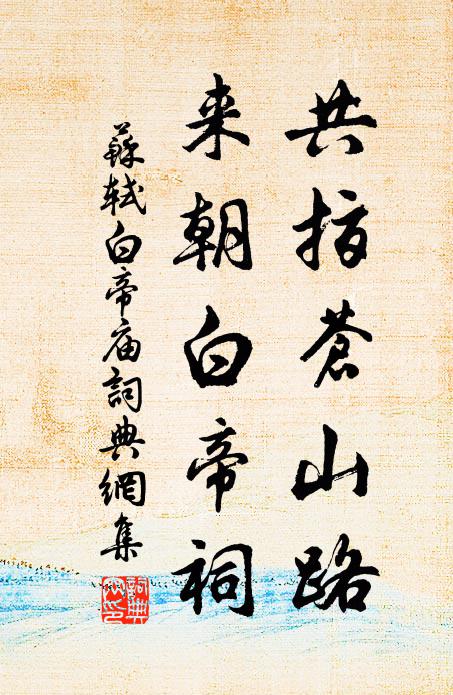 共指蒼山路
来朝白帝祠
蘇軾白帝庙詞典網集